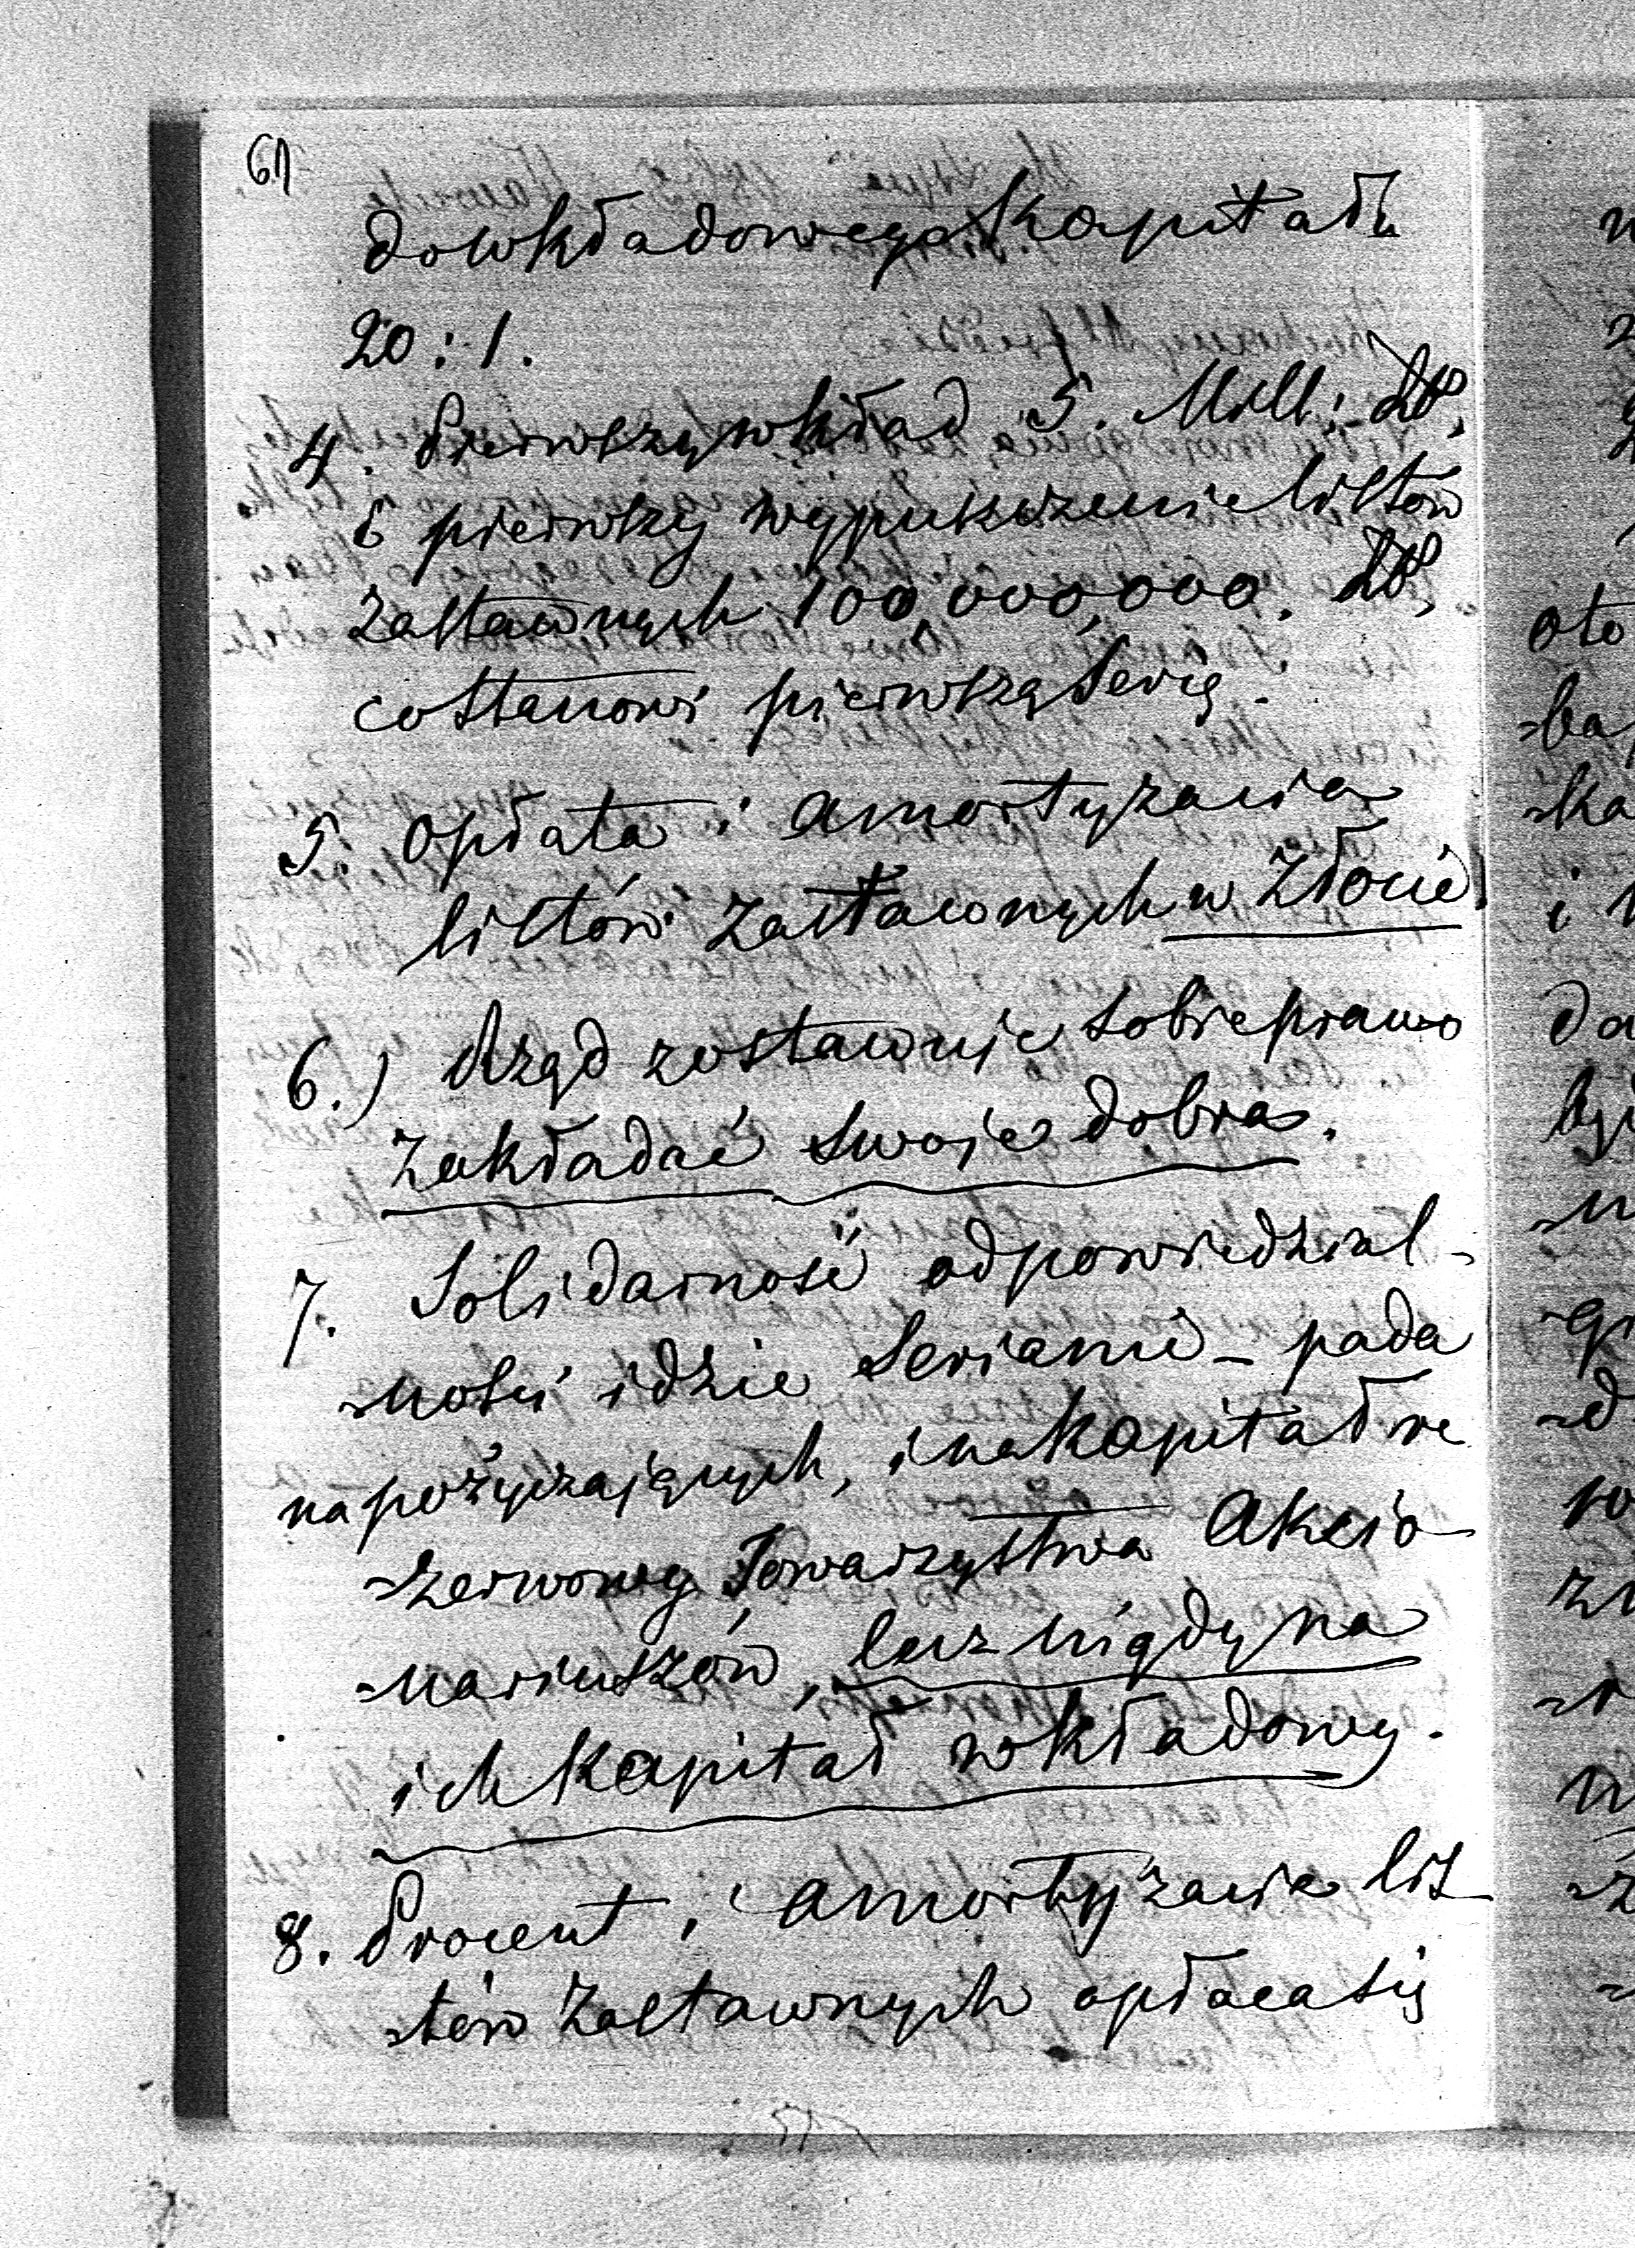 61
do wkładowego Kapitału
20 : 1.
4. Pierwszy wkład 5. Mill: Złp,
6 pierwszy wypuszczenie listów
Zastawnych 100,000,000. Złp,
co stanowi pierwszą Serię.
5. Opłata i amortyzacia
listów Zastawnych w Złocie
6.) Rząd zostawuje sobie prawo
Zakładać swoje dobra.
7. Solidarność odpowiedzial-
-ności idzie Seriami - pada
na pożyczających, i na Kapitał re
-zerwowy Towarzystwa Akcio-
-nariuszów, lecz nigdy na
ich Kapitał wkładowy.
8. Procent, i amortyzacia lis-
-tów Zastawnych opłaca się